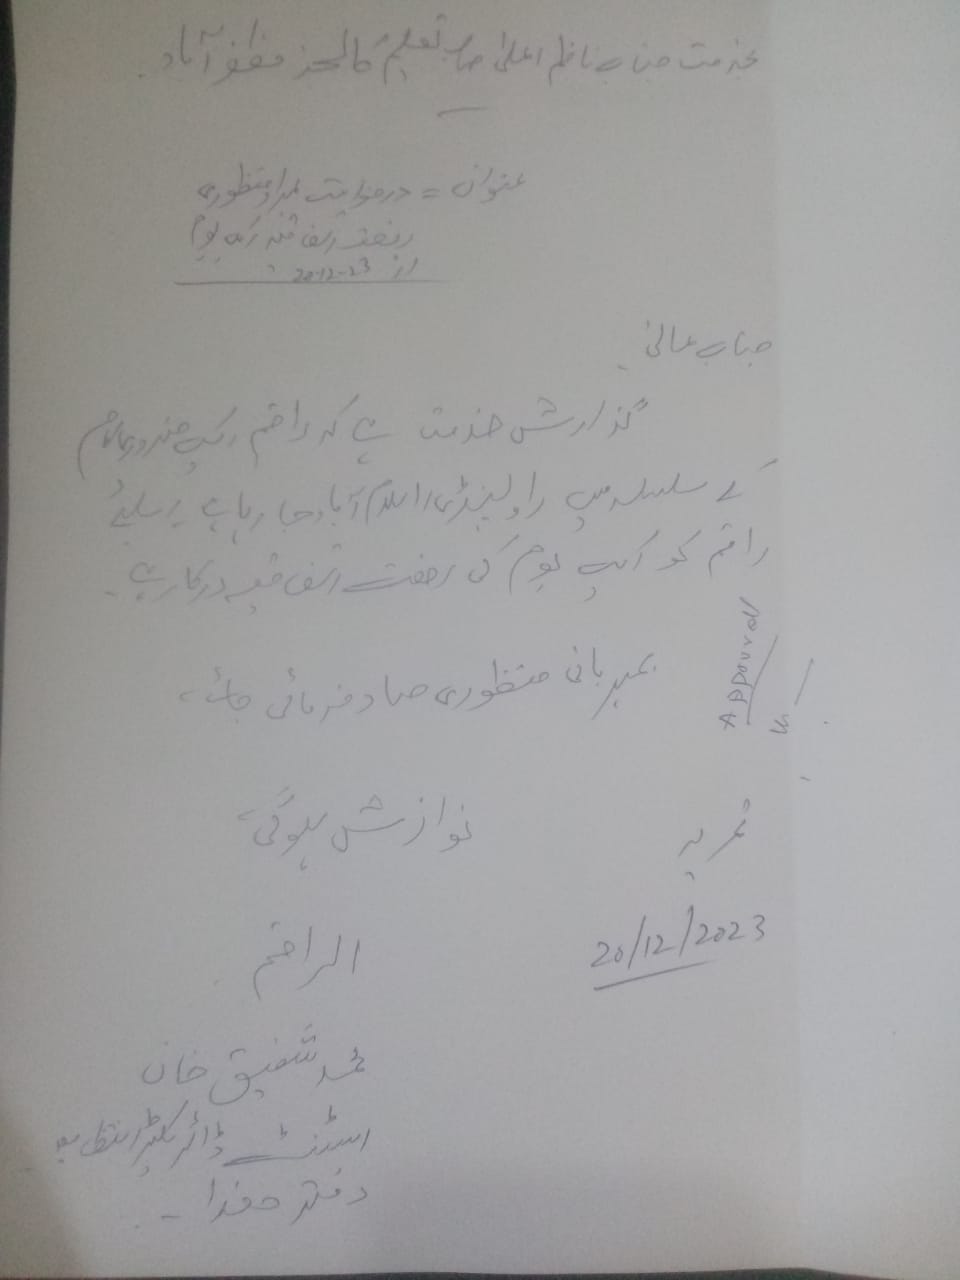 بخدمت جناب ناظم اعلیٰ صاحب تعلیم کالجز مظفرآباد۔
عنوان = درخواست بمراد منظوری
رخصت اتفاقیہ ایک یوم
از 20-12-23
جناب عالیٰ
گذارش خدمت ہے کہ راقم ایک ضروری کام
کے سلسلہ میں راولپنڈی / اسلام آباد جا رہا ہے اسلیئے
راقم کو ایک یوم کی رخصت اتفاقیہ درکار ہے۔
بمہربانی منظوری صادر فرمائی جائے۔
Approved
نوازش ہوگی۔
تحریر
20/12/2023
الراقم
محمد شفیق خان
اسٹنٹ ڈائریکٹر انتظامیہ
دفتر ھذا